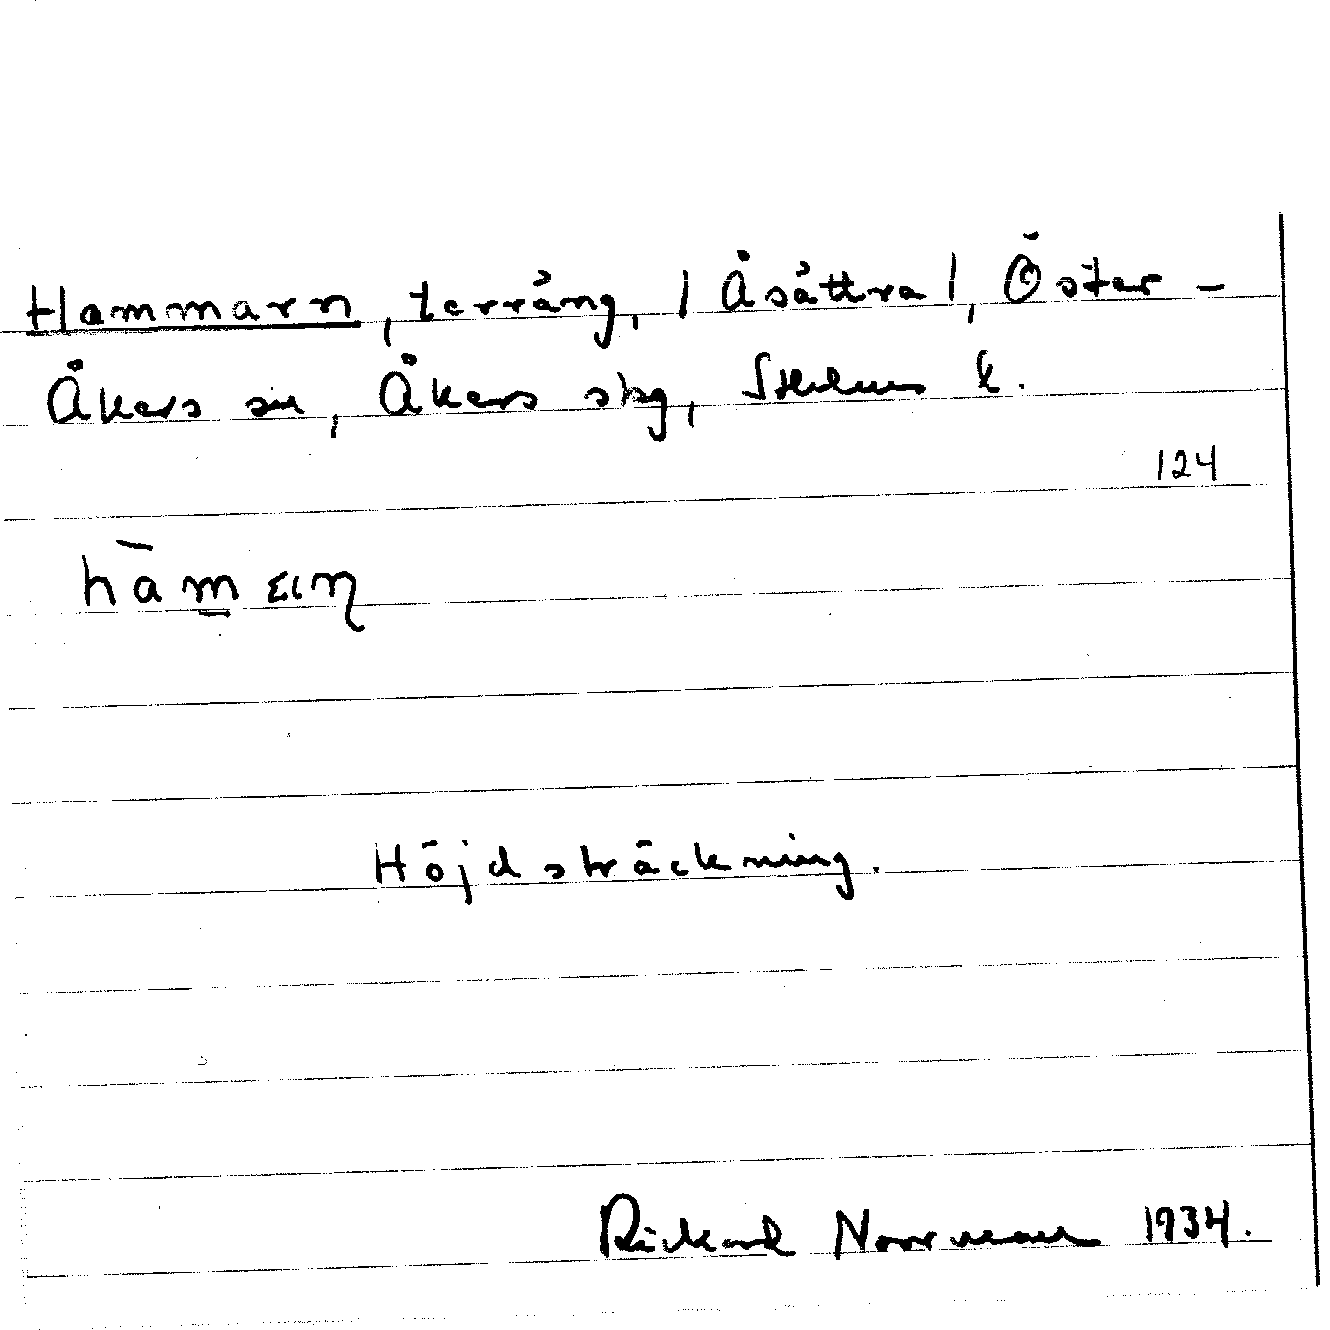 Hammarn, terräng, / Åsättra /, Öster-
Åkers sn, Åkers skg, Sthlms l.
124
Höjdsträckning.
Rickard Norrman 1934.